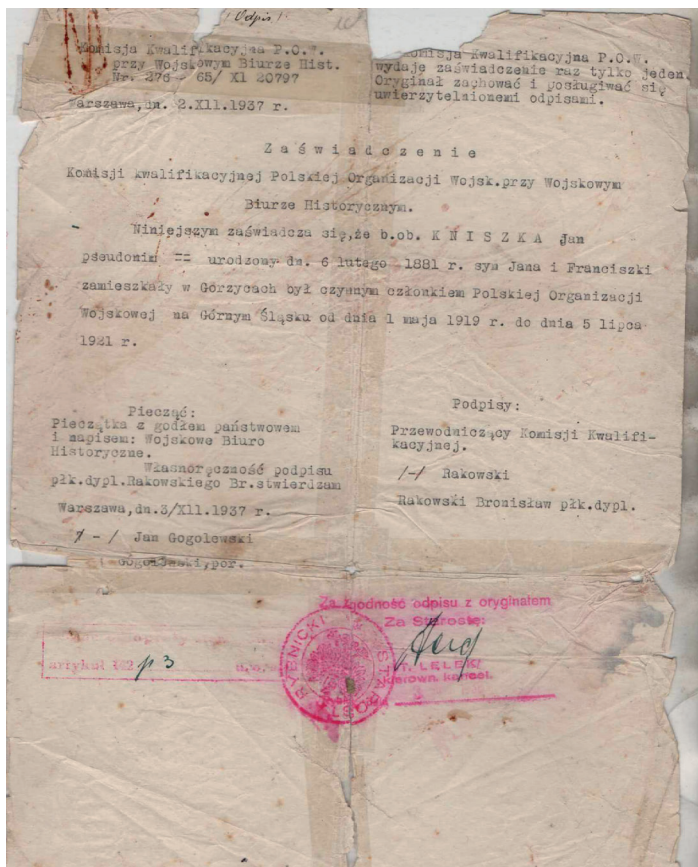 /Odpis/
Komisja Kwalifikacyjna P.O.W.
przy Wojskowym Biurze Hist.
Nr. 276 - 65/ XI 20797
Warszawa,dn. 2.XII.1937 r.
Komisja Kwalifikacyjna P.O.W.
wydaje zaświadczenie raz tylko jeden
Oryginał zachować i posługiwać się
uwierzytelnionemi odpisami.
Zaświadczenie
Komisji kwalifikacyjnej Polskiej Organizacji Wojsk.przy Wojskowym
Biurze Historycznym.
Niniejszym zaświadcza się,że b.ob. KNISZKA Jan
pseudonim == urodzony dn. 6 lutego 1881 r. syn Jana i Franciszki
zamieszkały w Gorzycach był czynnym członkiem Polskiej Organizacji
Wojskowej na Górnym Śląsku od dnia 1 maja 1919 r. do dnia 5 lipca
1921 r.
Pieczęć:
Pieczątka z godłem państwowem
i napisem: Wojskowe Biuro
Historyczne.
Własnoręczność podpisu
płk.dypl.Rakowskiego Br.stwierdzam
Warszawa,dn.3/XII.1937 r.
/-/ Jan Gogolewski
Gogolewski,por.
Podpisy:
Przewodniczący Komisji Kwalifi-
kacyjnej.
/-/ Rakowski
Rakowski Bronisław płk.dypl.
Za zgodność odpisu z oryginałem
Za Starostę:
LELEK
kierown. kancel.
artykuł 142 p 3
STAROSTA RYBNICKI